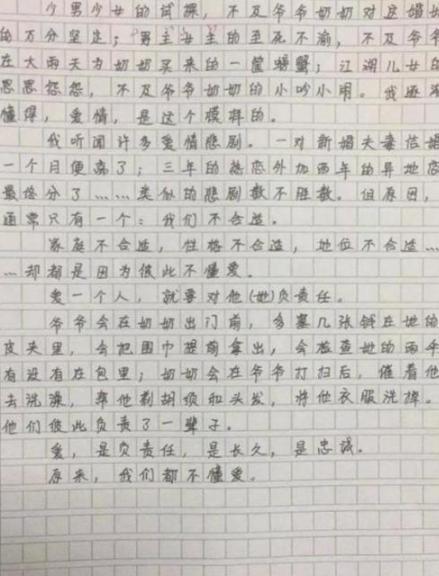 少男少女的试探，不及爷爷奶奶对这婚姻
的万分坚定；男主女主的至死不渝，不及爷爷
在大雨天为奶奶买来的一筐螃蟹；江湖儿女的
恩恩怨怨，不及爷爷奶奶的小吵小闹。我逐渐
懂得，爱情，是这个模样的。
我听闻许多爱情悲剧。一对新婚夫妻结婚
一个月便离了；三年的热恋外加两年的异地恋
最终分了……类似的悲剧数不胜数。但原因，
通常只有一个：我们不合适。
家庭不合适，性格不合适，地位不合适…
…却都是因为彼此不懂爱。
爱一个人，就要对他(她)负责任。
爷爷会在奶奶出门前，多塞几张钱在她的
皮夹里，会把围巾提前拿出，会检查她的雨伞
有没有在包里；奶奶会在爷爷打扫后，催着他
去洗澡，帮他剃胡须和头发，将他衣服洗掉。
他们彼此负责了一辈子。
爱，是负责任，是长久，是忠诚。
原来，我们都不懂爱。